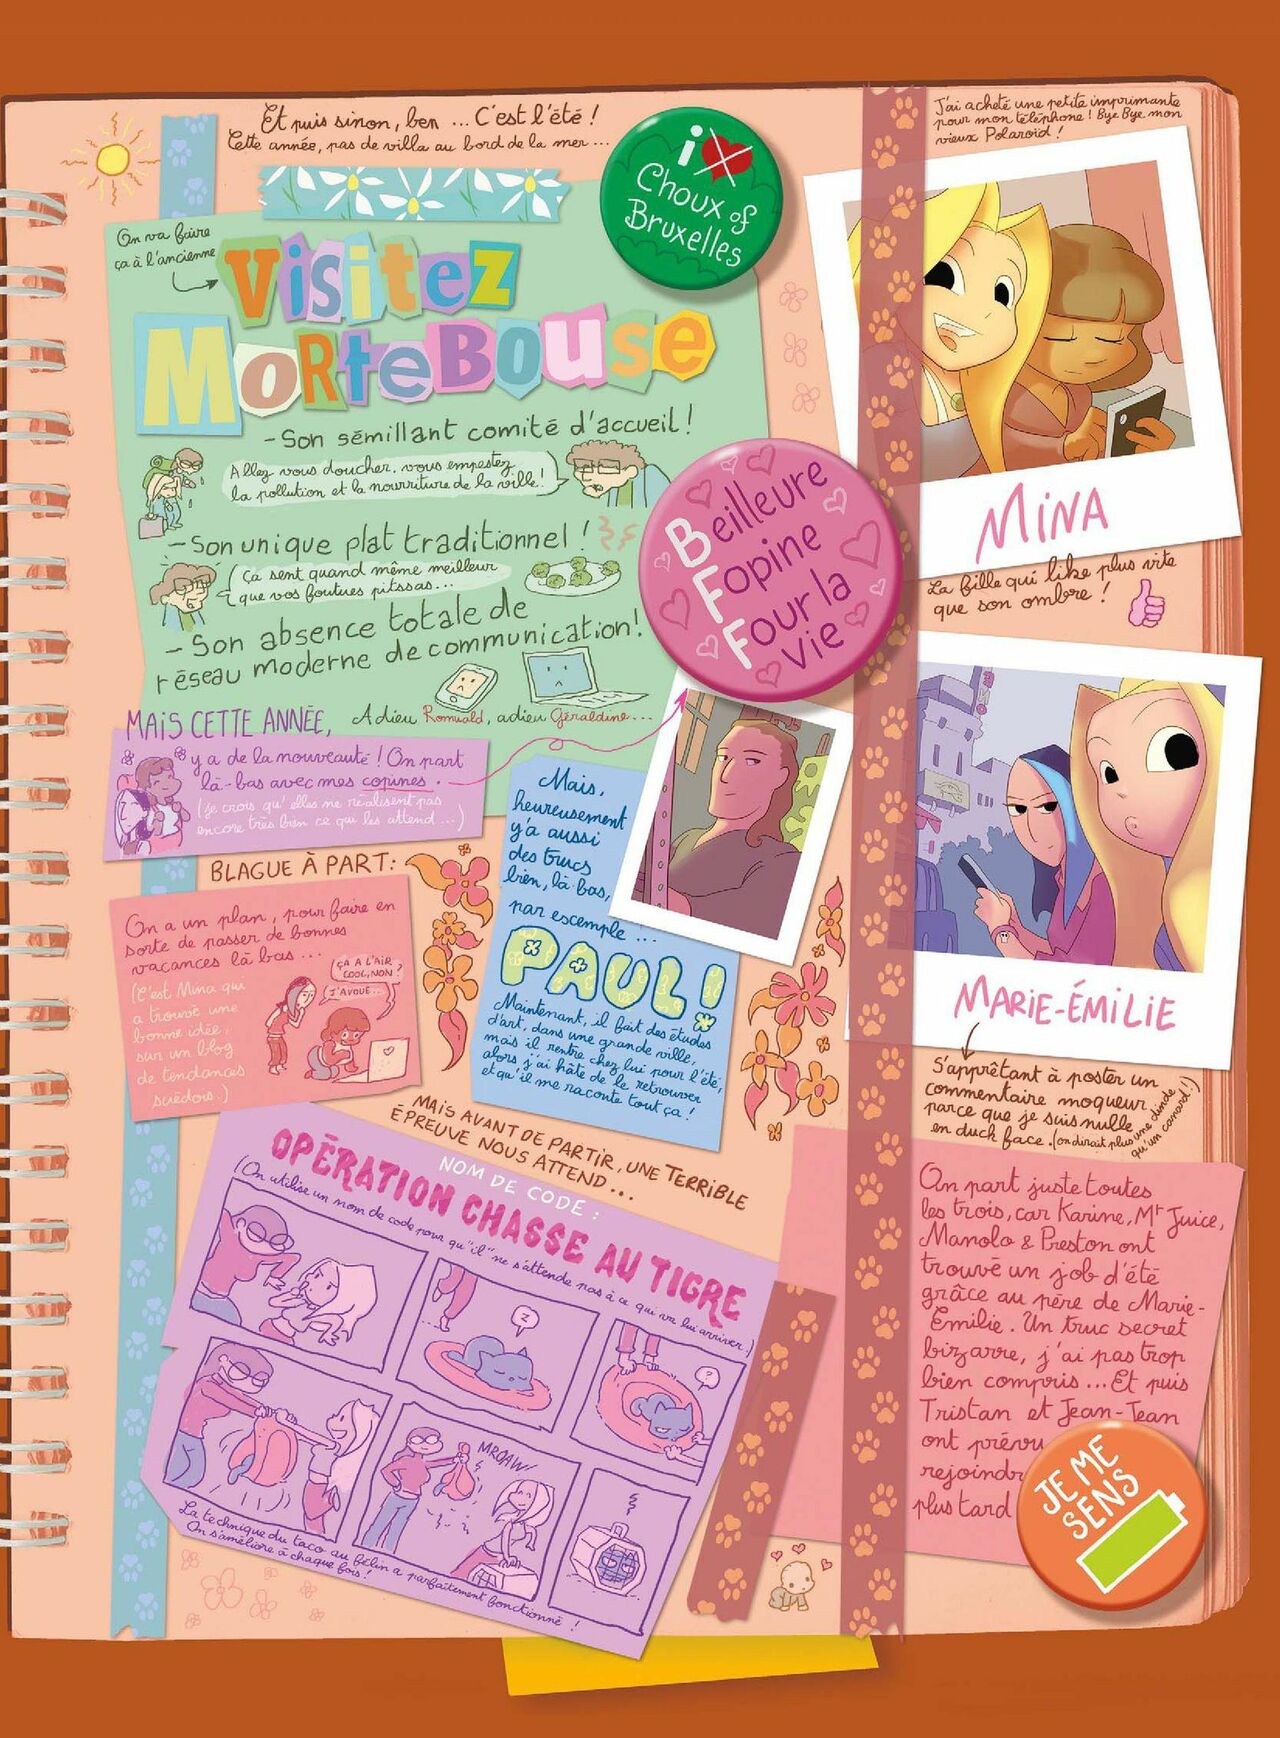 Et puis sinon, ben ... C'est l'été !
Cette année, pas de villa au bord de la mer ...
i
Choux of
Bruxelles
J'ai acheté une petite imprimante
pour mon téléphone ! Bye Bye mon
vieux Polaroïd !
On va faire
ça à l'ancienne
Visitez
Mortebouse
- Son sémillant comité d'accueil !
Allez vous doucher, vous empestez
la pollution et la nourriture de la ville !
- Son unique plat traditionnel !
Ça sent quand même meilleur
que vos foutues pitssas...
- Son absence totale de
réseau moderne de communication !
Adieu Romuald, adieu Géraldine...
Beilleure
Fopine
Four la
vie
MINA
La fille qui like plus vite
que son ombre !
MAIS CETTE ANNÉE,
y a de la nouveauté ! On part
là-bas avec mes copines.
(je crois qu'elles ne réalisent pas
encore très bien ce qui les attend...)
BLAGUE À PART :
On a un plan, pour faire en
sorte de passer de bonnes
vacances là bas ...
(C'est Mina qui
a trouvé une
bonne idée,
sur un blog
de tendances
suédois.)
ÇA A L'AIR
COOL, NON ?
J'AVOUE...
Mais,
heureusement
y'a aussi
des trucs
bien, là bas,
par escemple ...
PAUL !
Maintenant, il fait des études
d'art, dans une grande ville,
mais il rentre chez lui pour l'été,
alors j'ai hâte de le retrouver
et qu'il me raconte tout ça !
MARIE-ÉMILIE
S'apprêtant à poster un
commentaire moqueur
parce que je suis nulle
en duck face. (on dirait plus une dinde
qu'un canard !)
MAIS AVANT DE PARTIR, UNE TERRIBLE
ÉPREUVE NOUS ATTEND ...
NOM DE CODE :
OPÉRATION CHASSE AU TIGRE
(On utilise un nom de code pour qu'"il" ne s'attende pas à ce qui va lui arriver !)
Z
?
MROAW!
La technique du taco au félin a parfaitement fonctionné !
On s'améliore à chaque fois !
On part juste toutes
les trois, car Karine, Mr Juice,
Manolo & Preston ont
trouvé un job d'été
grâce au père de Marie-
Emilie. Un truc secret
bizarre, j'ai pas trop
bien compris ... Et puis
Tristan et Jean-Jean
ont prévu
rejoindr
plus tard
JE ME
SENS